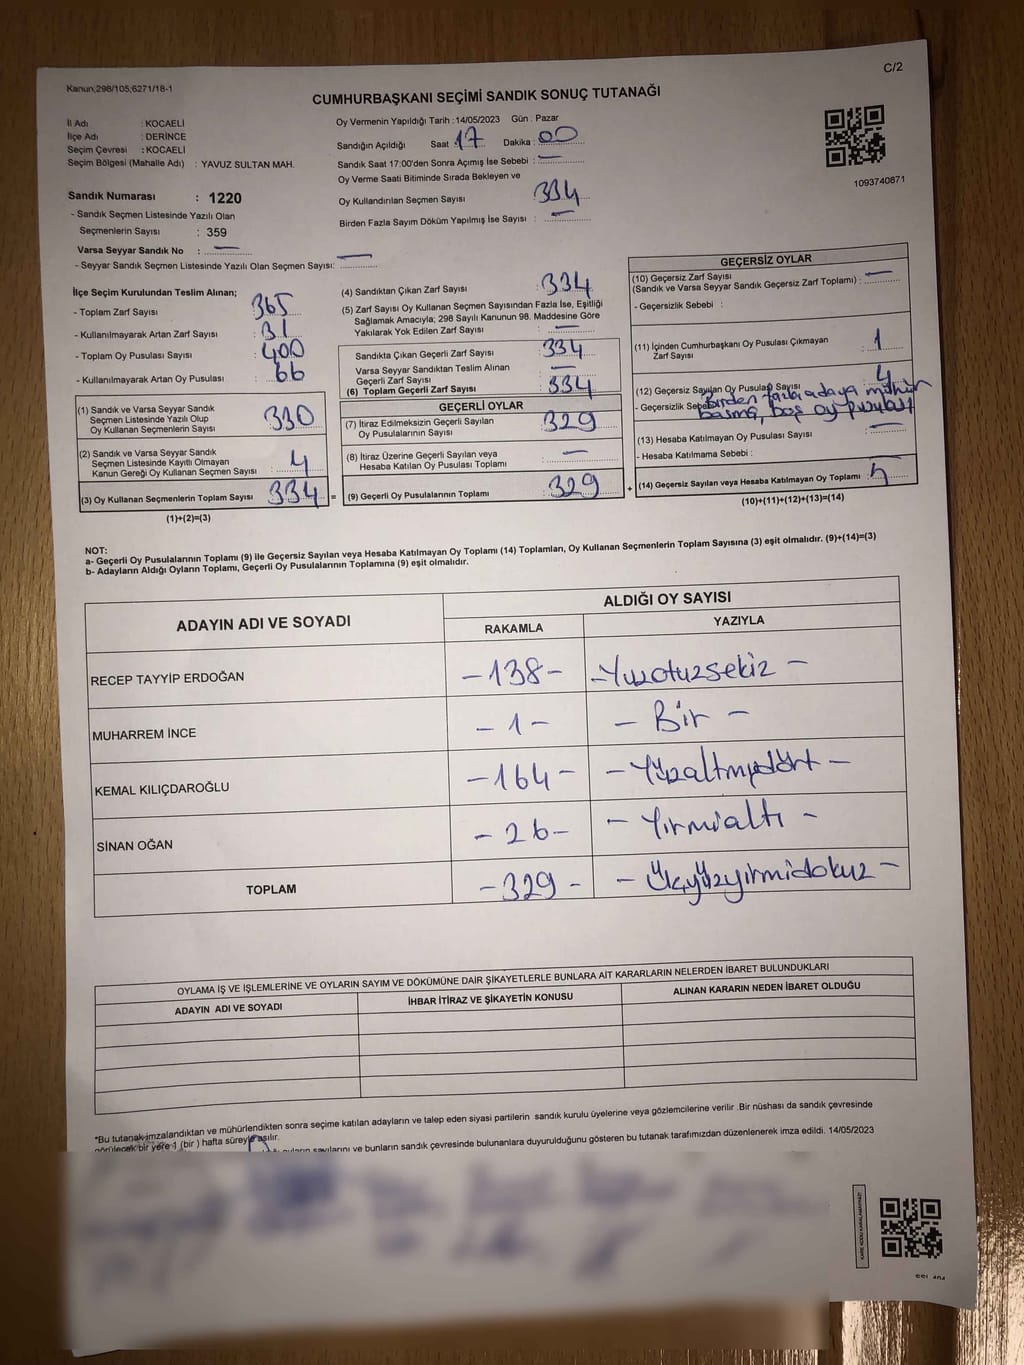 Kanun;298/105;6271/18-1
C/2
CUMHURBAŞKANI SEÇİMİ SANDIK SONUÇ TUTANAĞI
İl Adı : KOCAELİ
İlçe Adı : DERİNCE
Seçim Çevresi : KOCAELİ
Seçim Bölgesi (Mahalle Adı) : YAVUZ SULTAN MAH.
Sandık Numarası : 1220
- Sandık Seçmen Listesinde Yazılı Olan
Seçmenlerin Sayısı : 359
Varsa Seyyar Sandık No : —
- Seyyar Sandık Seçmen Listesinde Yazılı Olan Seçmen Sayısı: —
Oy Vermenin Yapıldığı Tarih :14/05/2023 Gün : Pazar
Sandığın Açıldığı Saat 17 Dakika 00
Sandık Saat 17:00'den Sonra Açımış İse Sebebi : —
Oy Verme Saati Bitiminde Sırada Bekleyen ve
Oy Kullandırılan Seçmen Sayısı 334
Birden Fazla Sayım Döküm Yapılmış İse Sayısı : —
1093740871
İlçe Seçim Kurulundan Teslim Alınan;
- Toplam Zarf Sayısı : 365
- Kullanılmayarak Artan Zarf Sayısı : 31
- Toplam Oy Pusulası Sayısı : 400
- Kullanılmayarak Artan Oy Pusulası : 66
(1) Sandık ve Varsa Seyyar Sandık
Seçmen Listesinde Yazılı Olup
Oy Kullanan Seçmenlerin Sayısı : 330
(2) Sandık ve Varsa Seyyar Sandık
Seçmen Listesinde Kayıtlı Olmayan
Kanun Gereği Oy Kullanan Seçmen Sayısı : 4
(3) Oy Kullanan Seçmenlerin Toplam Sayısı : 334 =
(1)+(2)=(3)
(4) Sandıktan Çıkan Zarf Sayısı : 334
(5) Zarf Sayısı Oy Kullanan Seçmen Sayısından Fazla İse, Eşitliği
Sağlamak Amacıyla; 298 Sayılı Kanunun 98. Maddesine Göre
Yakılarak Yok Edilen Zarf Sayısı : —
Sandıkta Çıkan Geçerli Zarf Sayısı : 334
Varsa Seyyar Sandıktan Teslim Alınan
Geçerli Zarf Sayısı : —
(6) Toplam Geçerli Zarf Sayısı : 334
GEÇERLİ OYLAR
(7) İtiraz Edilmeksizin Geçerli Sayılan
Oy Pusulalarının Sayısı : 329
(8) İtiraz Üzerine Geçerli Sayılan veya
Hesaba Katılan Oy Pusulası Toplamı : —
(9) Geçerli Oy Pusulalarının Toplamı : 329 +
GEÇERSİZ OYLAR
(10) Geçersiz Zarf Sayısı
(Sandık ve Varsa Seyyar Sandık Geçersiz Zarf Toplamı) : —
- Geçersizlik Sebebi :
(11) İçinden Cumhurbaşkanı Oy Pusulası Çıkmayan
Zarf Sayısı : 1
(12) Geçersiz Sayılan Oy Pusulası Sayısı : 4
- Geçersizlik Sebebi : Birden fazla adaya mühür
basma, boş oy pusulası
(13) Hesaba Katılmayan Oy Pusulası Sayısı : —
- Hesaba Katılmama Sebebi :
(14) Geçersiz Sayılan veya Hesaba Katılmayan Oy Toplamı : 5
(10)+(11)+(12)+(13)=(14)
NOT:
a- Geçerli Oy Pusulalarının Toplamı (9) ile Geçersiz Sayılan veya Hesaba Katılmayan Oy Toplamı (14) Toplamları, Oy Kullanan Seçmenlerin Toplam Sayısına (3) eşit olmalıdır. (9)+(14)=(3)
b- Adayların Aldığı Oyların Toplamı, Geçerli Oy Pusulalarının Toplamına (9) eşit olmalıdır.
ADAYIN ADI VE SOYADI
ALDIĞI OY SAYISI
RAKAMLA YAZIYLA
RECEP TAYYİP ERDOĞAN -138- -Yüzotuzsekiz -
MUHARREM İNCE - 1 - - Bir -
KEMAL KILIÇDAROĞLU -164- -Yüzaltmışdört -
SİNAN OĞAN - 26 - - Yirmialtı -
TOPLAM -329 - - Üçyüzyirmidokuz -
OYLAMA İŞ VE İŞLEMLERİNE VE OYLARIN SAYIM VE DÖKÜMÜNE DAİR ŞİKAYETLERLE BUNLARA AİT KARARLARIN NELERDEN İBARET BULUNDUKLARI
ADAYIN ADI VE SOYADI İHBAR İTİRAZ VE ŞİKAYETİN KONUSU ALINAN KARARIN NEDEN İBARET OLDUĞU
*Bu tutanak imzalandıktan ve mühürlendikten sonra seçime katılan adayların ve talep eden siyasi partilerin sandık kurulu üyelerine veya gözlemcilerine verilir .Bir nüshası da sandık çevresinde
görülecek bir yere 1 (bir ) hafta süreyle asılır.
oyların sayılarını ve bunların sandık çevresinde bulunanlara duyurulduğunu gösteren bu tutanak tarafımızdan düzenlenerek imza edildi. 14/05/2023